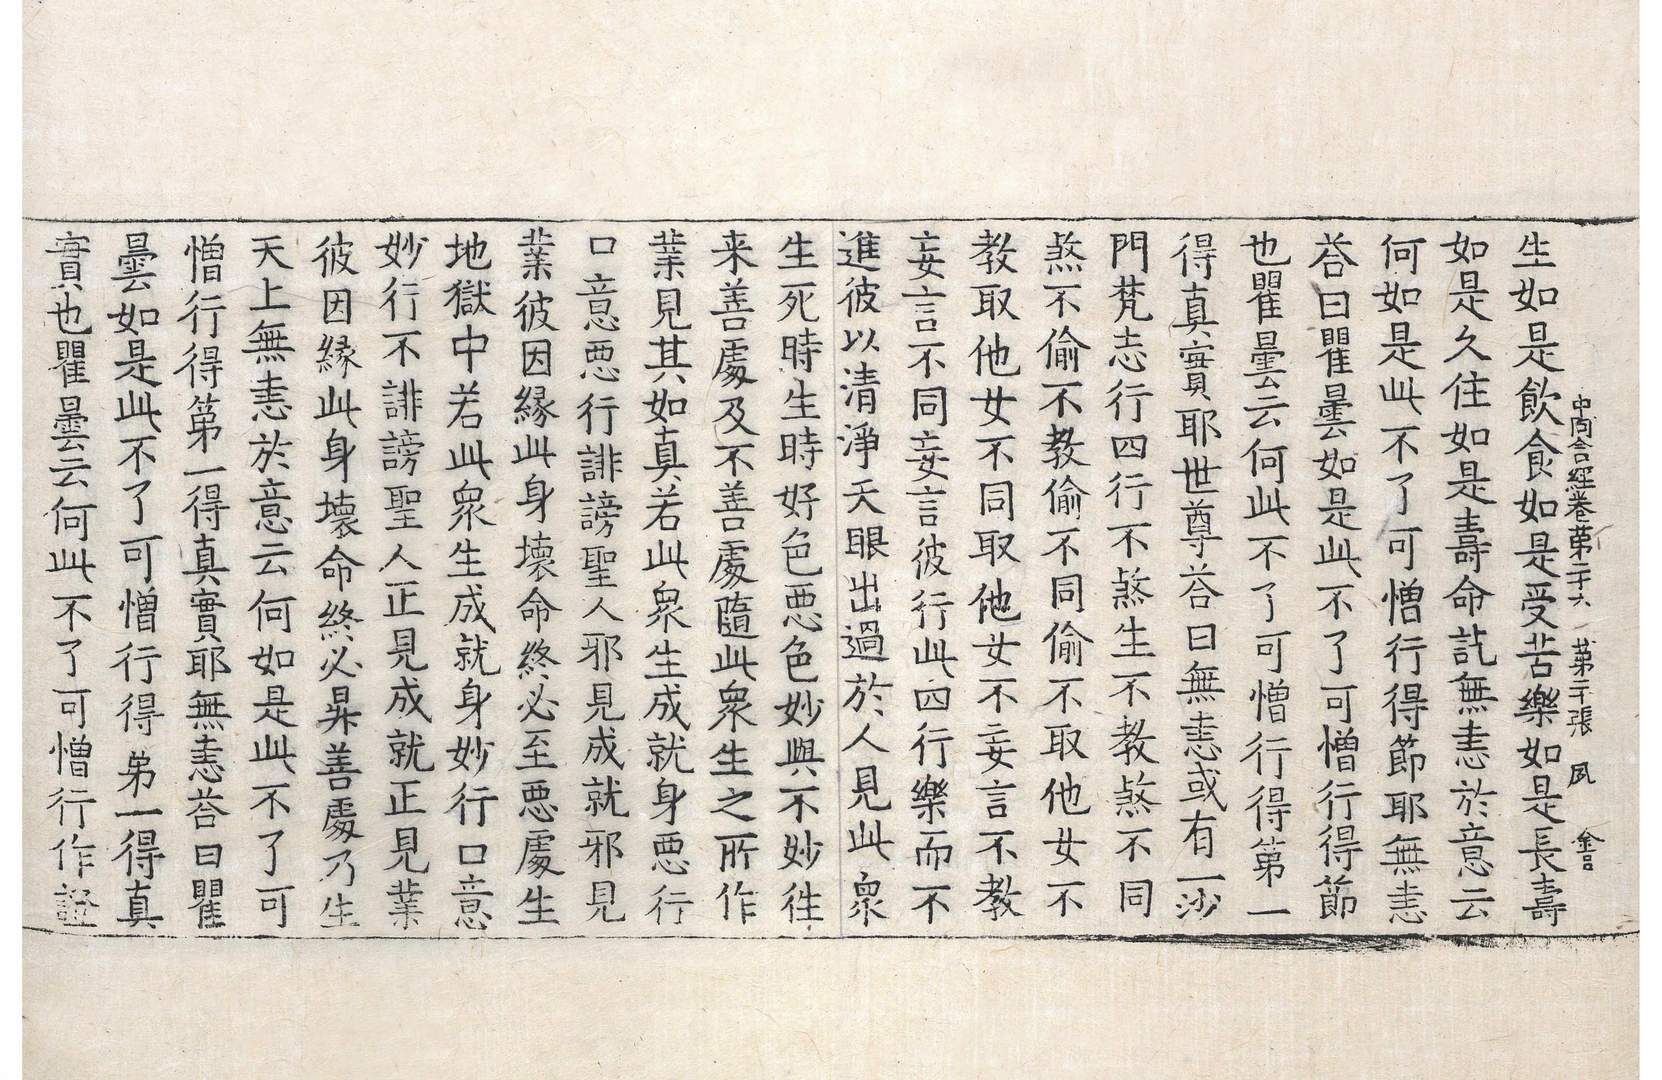 中阿含經卷第二十六　第二十張　夙
生如是飲食如是受苦樂如是長壽
如是久住如是壽命訖無恚於意云
何如是此不了可憎行得節耶無恚
荅曰瞿曇如是此不了可憎行得節
也瞿曇云何此不了可憎行得第一
得真實耶世尊荅曰無恚或有一沙
門梵志行四行不煞生不教煞不同
煞不偷不教偷不同偷不取他女不
教取他女不同取他女不妄言不教
妄言不同妄言彼行此四行樂而不
進彼以清淨天眼出過於人見此衆
生死時生時好色惡色妙與不妙徃
来善處及不善處隨此衆生之所作
業見其如真若此衆生成就身惡行
口意惡行誹謗聖人邪見成就邪見
業彼因緣此身壞命終必至惡處生
地獄中若此衆生成就身妙行口意
妙行不誹謗聖人正見成就正見業
彼因緣此身壞命終必昇善處乃生
天上無恚於意云何如是此不了可
憎行得第一得真實耶無恚荅曰瞿
曇如是此不了可憎行得第一得真
實也瞿曇云何此不了可憎行作證